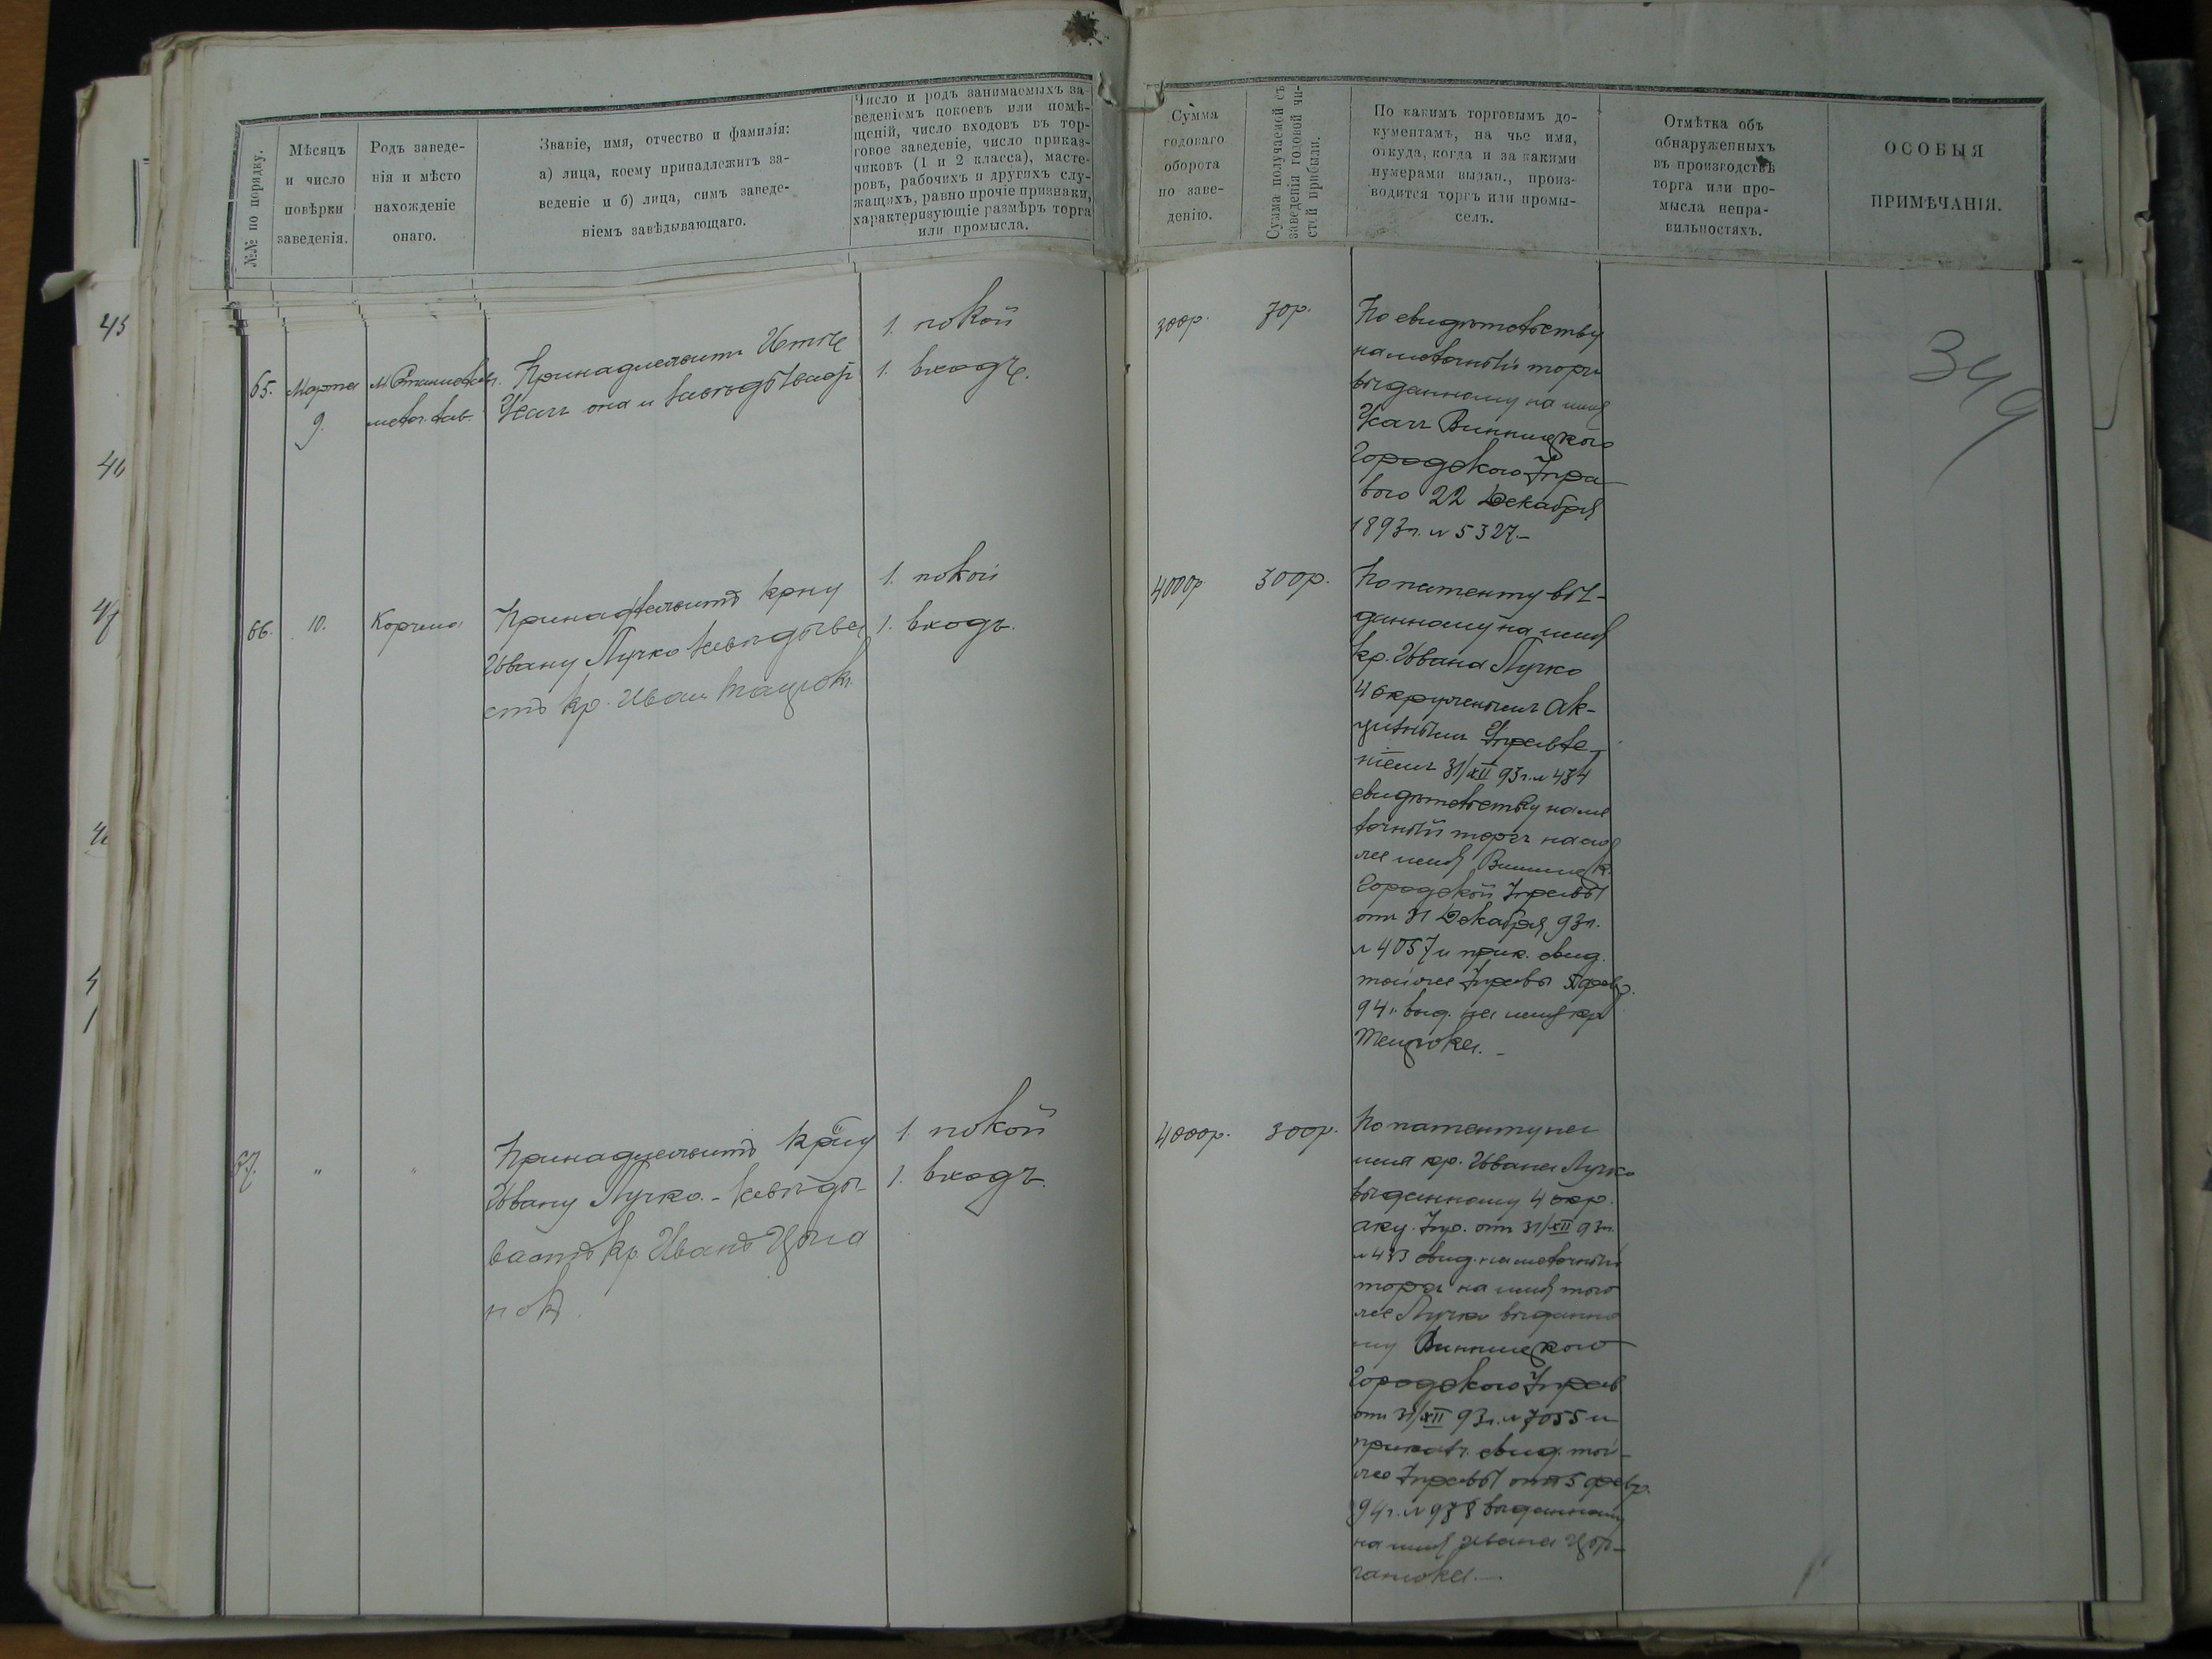 №№ по порядку.
Мѣсяцъ
и число
повѣрки
заведенія.
Родъ заведе-
нія и мѣсто
нахожденіе
онаго.
Званіе, имя, отчество и фамилія:
а) лица, коему принадлежитъ за-
веденіе и б) лица, симъ заведе-
ніемъ завѣдывающаго.
Число и родъ занимаемыхъ за-
веденіемъ покоевъ или помѣ-
щеній, число входовъ въ тор-
говое заведеніе, число приказ-
чиковъ (1 и 2 класса), масте-
ровъ, рабочихъ и другихъ слу-
жащихъ, равно прочіе признаки,
характеризующіе размѣръ торга
или промысла.
Сумма
годоваго
оборота
по заве-
денію.
Сумма получаемой съ
заведенія годовой чи-
стой прибыли.
По какимъ торговымъ до-
кументамъ, на чье имя,
откуда, когда и за какими
нумерами выдан., произ-
водится торгъ или промы-
селъ.
Отмѣтка объ
обнаруженныхъ
въ производствѣ
торга или про-
мысла непра-
вильностяхъ.
ОСОБЫЯ
ПРИМѢЧАНІЯ.
349
45
65.
Марта
9.
Принадлежитъ
она и
1. покой
1. входъ.
300р.
70р.
По свидѣтельству
на мелочный торгъ
выданному на имя
Винницкого
Городского Упра
вою 22 Декабря
1893г. № 5327.-
66.
10.
Корчма
Принадлежитъ крну
Ивану Лучко завѣдыва
етъ кр. Иван
1. покой
1. входъ.
4000р.
300р.
По патенту вы-
данному на имя
кр. Ивана Лучко
4 окружнымъ Ак-
цизнымъ Управле-
ніемъ 31/XII 93г. № 434
свидѣтельству на ме
лочный торгъ на
же имя Винницк.
Городской Управы
отъ 31 Декабря 93г.
№ 4057 и прик. свид.
той же Управы 5 февр.
94г. выд. на имя кр
67.
"
"
Принадлежитъ крну
Ивану Лучко - завѣды-
ваетъ кр. Иванъ Цыга
нокъ.
1. покой
1. входъ.
4000р.
300р.
По патенту на
имя кр. Ивана Лучко
выданному 4 окр.
акц. Упр. отъ 31/XII 93г.
№ 433 свид. на мелочный
торгъ на имя того
же Лучко выданно
му Винницкою
Городскою Управ
отъ 31/XII 93г. № 7055 и
приказч. свид. той-
же Управы отъ 5 февр.
94г. № 978 выданному
на имя Ивана Цы-
ганюка.-